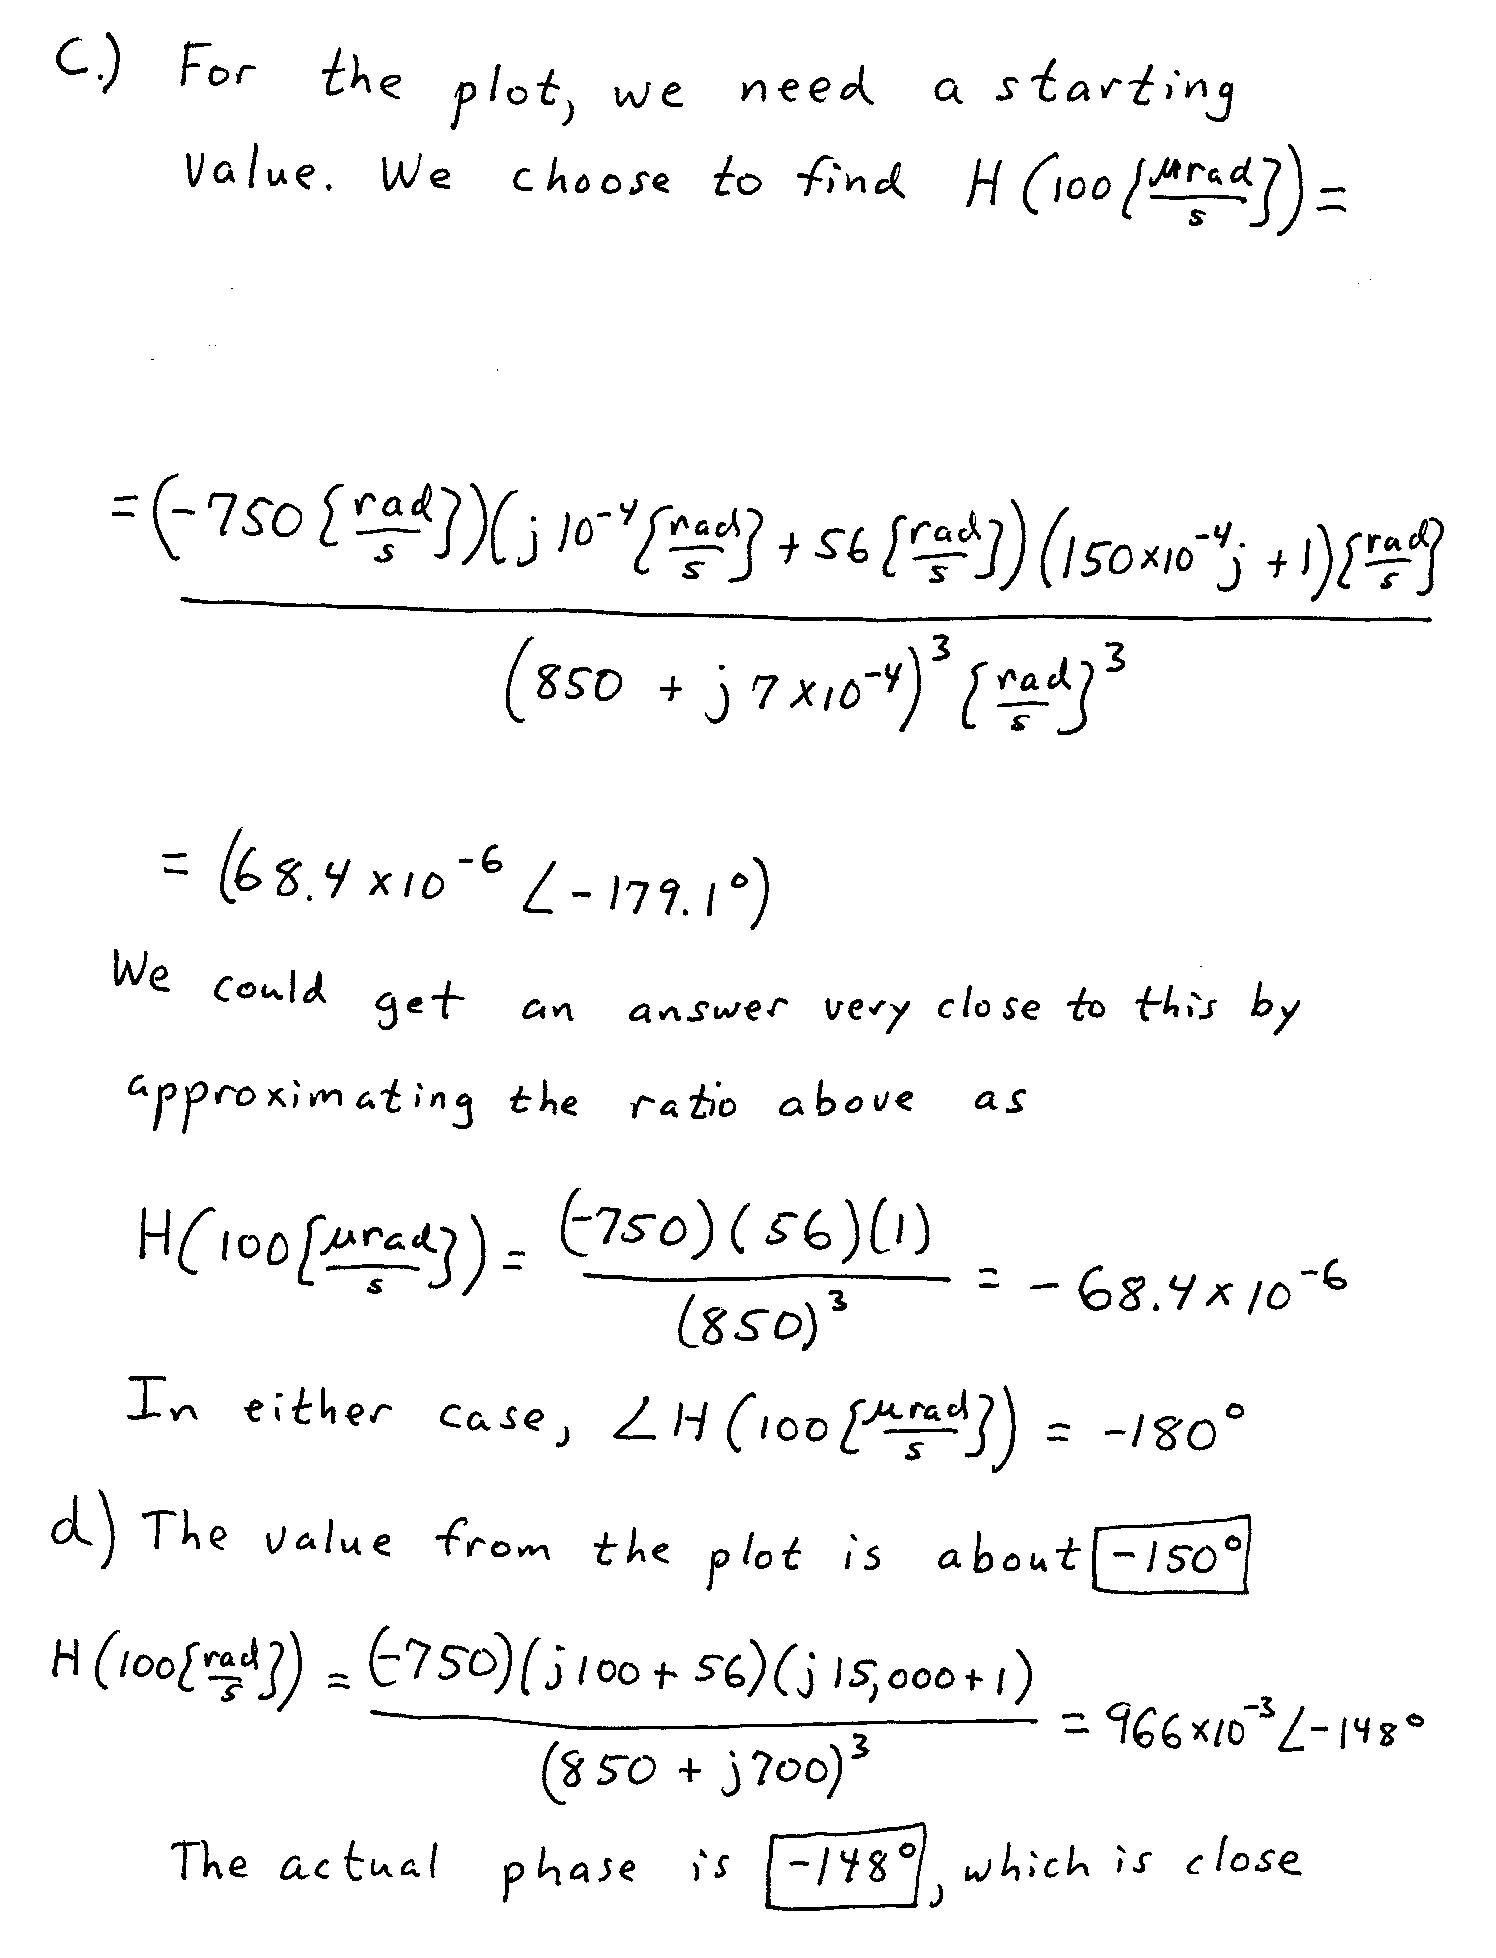 c.) For the plot, we need a starting
value. We choose to find H(100{μrad/s}) =
= (-750{rad/s})(j10^-4{rad/s} + 56{rad/s})(150×10^-4j + 1){rad/s}
(850 + j7×10^-4)^3{rad/s}^3
= (68.4×10^-6 ∠-179.1°)
We could get an answer very close to this by
approximating the ratio above as
H(100{μrad/s}) = (-750)(56)(1)/(850)^3 = -68.4×10^-6
In either case, ∠H(100{μrad/s}) = -180°
d) The value from the plot is about -150°
H(100{rad/s}) = (-750)(j100 + 56)(j15,000 + 1)/(850 + j700)^3 = 966×10^-3∠-148°
The actual phase is -148°, which is close